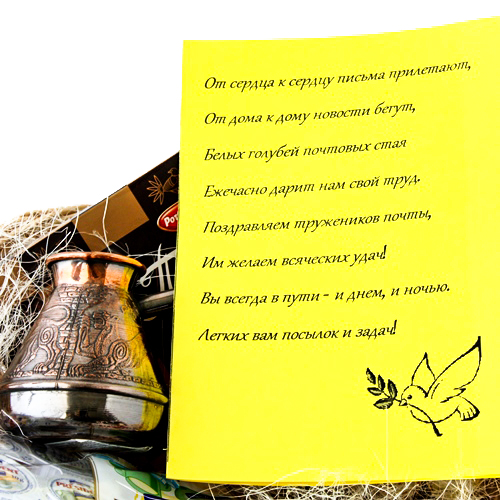 От сердца к сердцу письма прилетают,
От дома к дому новости бегут,
Белых голубей почтовых стая
Ежечасно дарит нам свой труд.
Поздравляем тружеников почты,
Им желаем всяческих удач!
Вы всегда в пути - и днем, и ночью.
Легких вам посылок и задач!